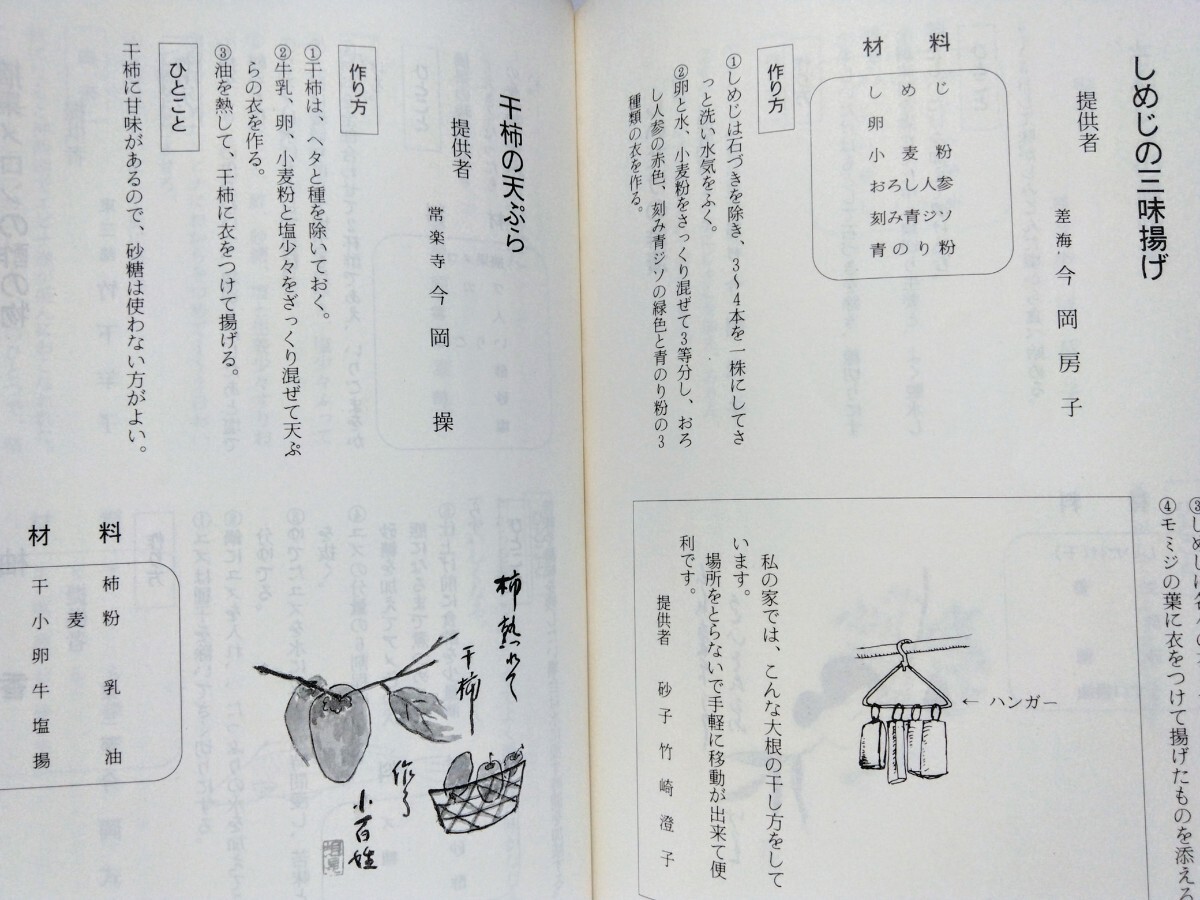 しめじの三味揚げ
提供者
差海 今岡房子
材料
しめじ
卵
小麦粉
おろし人参
刻み青ジソ
青のり粉
作り方
①しめじは石づきを除き、3〜4本を一株にしてさ
っと洗い水気をふく。
②卵と水、小麦粉をさっくり混ぜて3等分し、おろ
し人参の赤色、刻み青ジソの緑色と青のり粉の3
種類の衣を作る。
④モミジの葉に衣をつけて揚げたものを添える
← ハンガー
私の家では、こんな大根の干し方をして
います。
場所をとらないで手軽に移動が出来て便
利です。
提供者 砂子 竹崎澄子
干柿の天ぷら
提供者
常楽寺 今岡 操
作り方
①干柿は、ヘタと種を除いておく。
②牛乳、卵、小麦粉と塩少々をざっくり混ぜて天ぷ
らの衣を作る。
③油を熱して、干柿に衣をつけて揚げる。
ひとこと
干柿に甘味があるので、砂糖は使わない方がよい。
材料
干柿
小麦粉
卵
牛乳
塩
揚油
柿熟れて
干柿
作る
小百姓